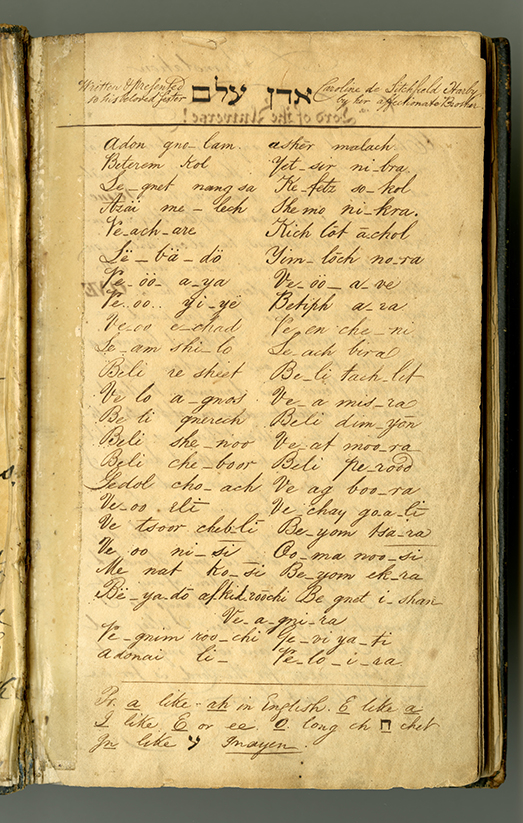 Written & presented to his beloved sister
אדון עלם
Caroline de Litchfield Harby by her affectionate Brother
Lord of the Universe!
Adon gno_lam. asher malach
Beterem Kol Yet_sir ni_bra
Le_gnet nang sa Ke_fetz so_kol
Azäi me_lech Shemo ni_kra.
Ve_ach_are Kich lōt āchol
Lë_bä_dō Yim_lōch no_ra
Ve_öö a_ya Ve_öö_a ve
Ve_oo.. yi_yé Betiph a_ra
Ve_oo e_chad Ve en che_ni
Le_am shi_lo Le_ach bira
Beli re sheet Be_li tach_lit
Ve lo a_gnos Ve_a mis_ra
Be li gnerech Beli dim_yōn
Beli she_noo Ve_at moo_ra
Beli che_boor Beli pe_rood
Gedol cho_ach Ve ag boo_ra
Ve_oo eli Ve chay go_a_li
Ve tsoor cheb_li Be_yom tsa_ra
Ve oo ni_si Oo_ma noo_si
Me nat ko_si Be_yom ek_ra
Bë_ya_dō afkid_roōchi Be gnet i_shan
Ve_a_gni_ra
Ve_gnim roo_chi Ge_vi ya_ti
Adonai li_ Ve_lo_i_ra
Pr. a like ah in English. E like a
I like E or ee. O. long ch ח chet
Gn like ע Gnayen.